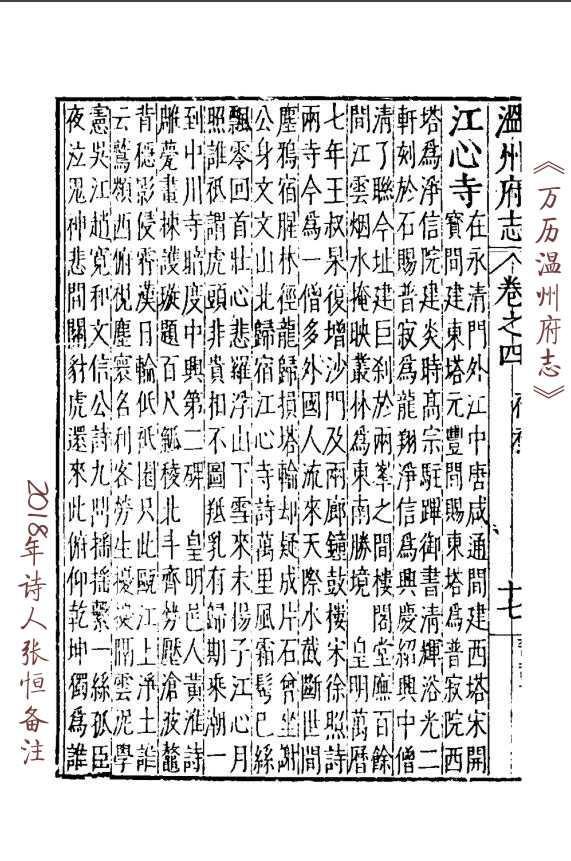 《万历温州府志》
溫州府志 卷之四 十七
江心寺 在永清門外江中唐咸通間建西塔宋開
寶間建東塔元豐間賜東塔爲普寂院西
塔爲淨信院建炎時高宗駐蹕御書清輝浴光二
軒刻於石賜普寂爲龍翔淨信爲興慶紹興中僧
清了聯今址建巨刹於兩峯之間樓閣堂廡百餘
間江雲烟水掩映叢林爲東南勝境 皇明萬曆
七年王叔杲復增沙門及兩廊鐘鼓樓宋徐照詩
兩寺今爲一僧多外國人流來天際水截斷世間
塵鴉宿腥林徑龍歸損塔輪却疑成片石曾坐謝
公身文文山北歸宿江心寺詩萬里風霜鬂已絲
飄零回首壯心悲羅浮山下雪來未揚子江心月
照誰祇謂虎頭非貴相不圖羝乳有歸期乘潮一
到中川寺暗度中興第二碑 皇明邑人黃淮詩
雕甍畫棟護璇題百尺觚稜北斗齊勢壓滄波鼇
背穩影侵霄漢日輪低祇園只此甌江上淨土誰
云鷲嶺西俯視塵寰名利客勞生擾擾隔雲泥學
憲吳江趙寬和文信公詩九門搖搖繫一絲孤臣
夜泣鬼神悲間關豺虎還來此俯仰乾坤獨爲誰
2018年诗人张恒备注